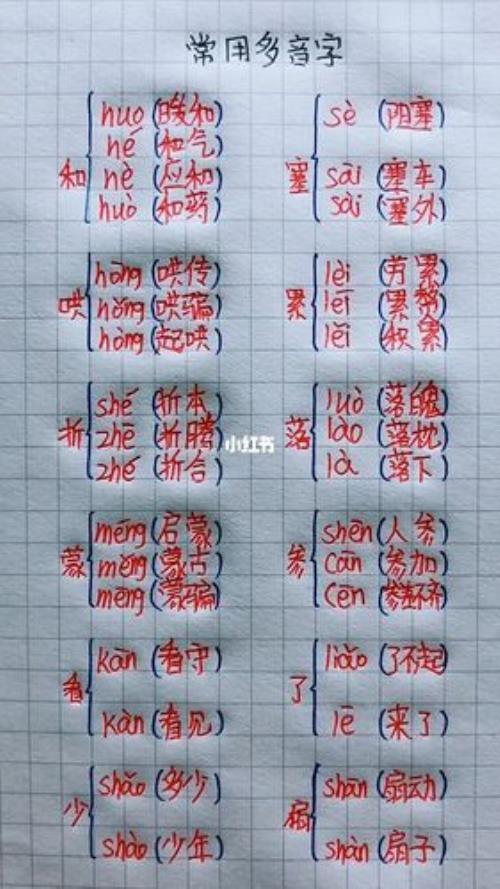 常用多音字
和
huo (暖和)
hé (和气)
hè (应和)
huò (和药)
哄
hōng (哄传)
hǒng (哄骗)
hòng (起哄)
折
shé (折本)
zhē (折腾)
zhé (折合)
蒙
méng (启蒙)
měng (蒙古)
mēng (蒙骗)
看
kān (看守)
kàn (看见)
少
shǎo (多少)
shào (少年)
塞
sè (阻塞)
sāi (塞车)
sài (塞外)
累
lèi (劳累)
léi (累赘)
lěi (积累)
落
luò (落魄)
lào (落枕)
là (落下)
参
shēn (人参)
cān (参加)
cēn (参差不齐)
了
liǎo (了不起)
lē (来了)
扇
shān (扇动)
shàn (扇子)
小红书